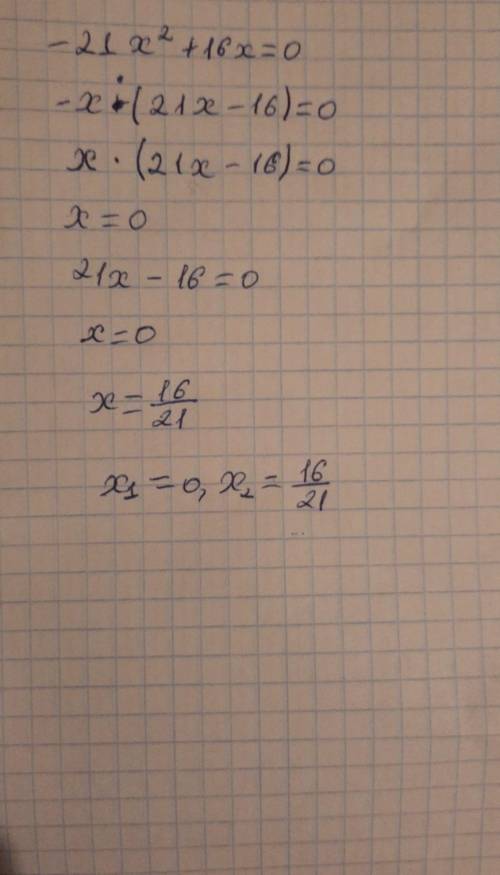 -21x² + 16x = 0
-x · (21x - 16) = 0
x · (21x - 16) = 0
x = 0
21x - 16 = 0
x = 0
x = 16/21
x₁ = 0, x₂ = 16/21